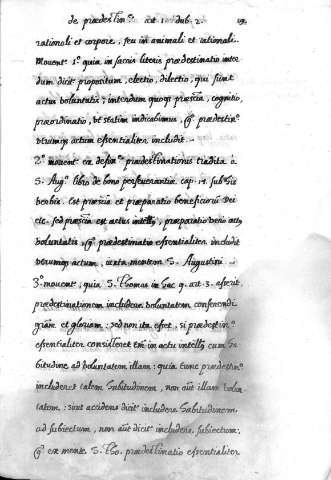 de prædestinne. art. 1. dub. 2. 19.
rationali et corpore, seu in animali et rationali.
Mouent. 1º. quia in sacris literis prædestinatio inter
dum dicit propositum, electio, dilectio, qui sunt
actus voluntatis; interdum quoqз præscia, cognitio,
præordinatio, vt statim indicabimus, gº prædestinº
vtrumqз actum essentialiter includit.
2º. mouent ex definne prædestinationis tradita à
S. Augº libro de bono perseuerantiæ cap. 14. sub his
verbis. Est præscia et præparatio beneficiorũ Dei
etc. sed præscia est actus intellꝰ, præparatio verò actꝰ
voluntatis, gº prædestinatio essentialiter includit
vtrumqз actum, iuxta mentem S. Augustini.
3º. mouent, quia S. Thomas in hac q. art. 3. asserit,
prædestinationem includere voluntatem conferendi
grãm et gloriam: sed non ita esset, si prædestinº
essentialiter consisteret tm̃ in actu intellꝰ cum ha
bitudine ad voluntatem illam: quia tunc prædestinº
includeret talem habitudinem, non aũt illam volun
tatem: sicut accidens dicitr includere habitudinem
ad subiectum, non aũt dicitr includere subiectum;
gº ex mente S. Tho. prædestinatio essentialiter